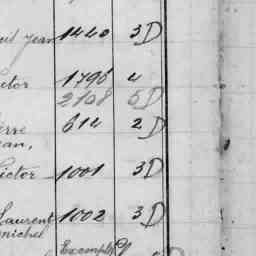 Jean 1440 3D
ctor 1796 4
2108 5D
erre 614 2D
ean,
ictor 1001 3D
Laurent 1002 3D
michel
Exempté